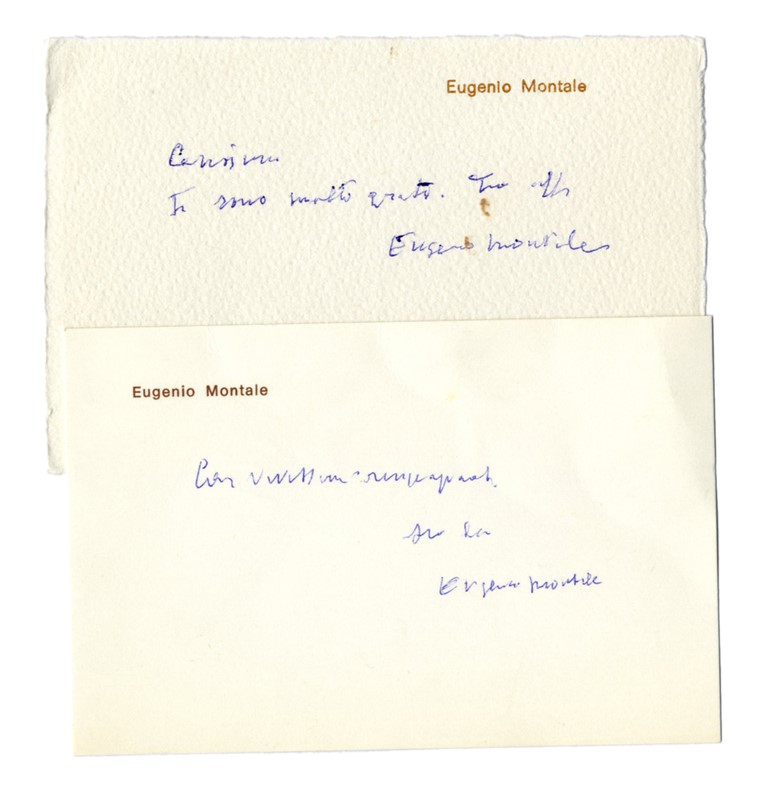 Eugenio Montale
Carissimo
Ti sono molto grato. Tuo aff
Eugenio Montale
Eugenio Montale
Con vivissimi
suo
Eugenio Montale